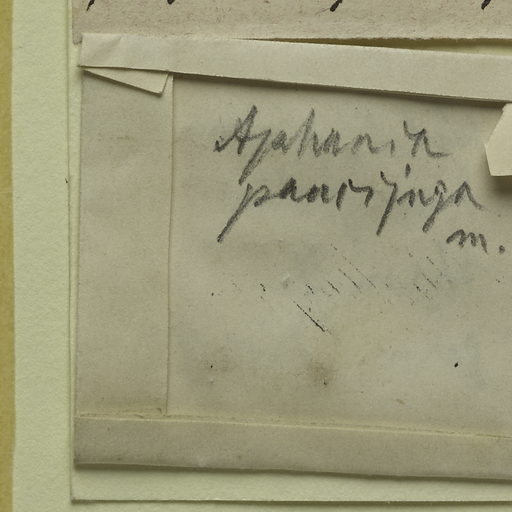 Aphania
paucijuga
m.